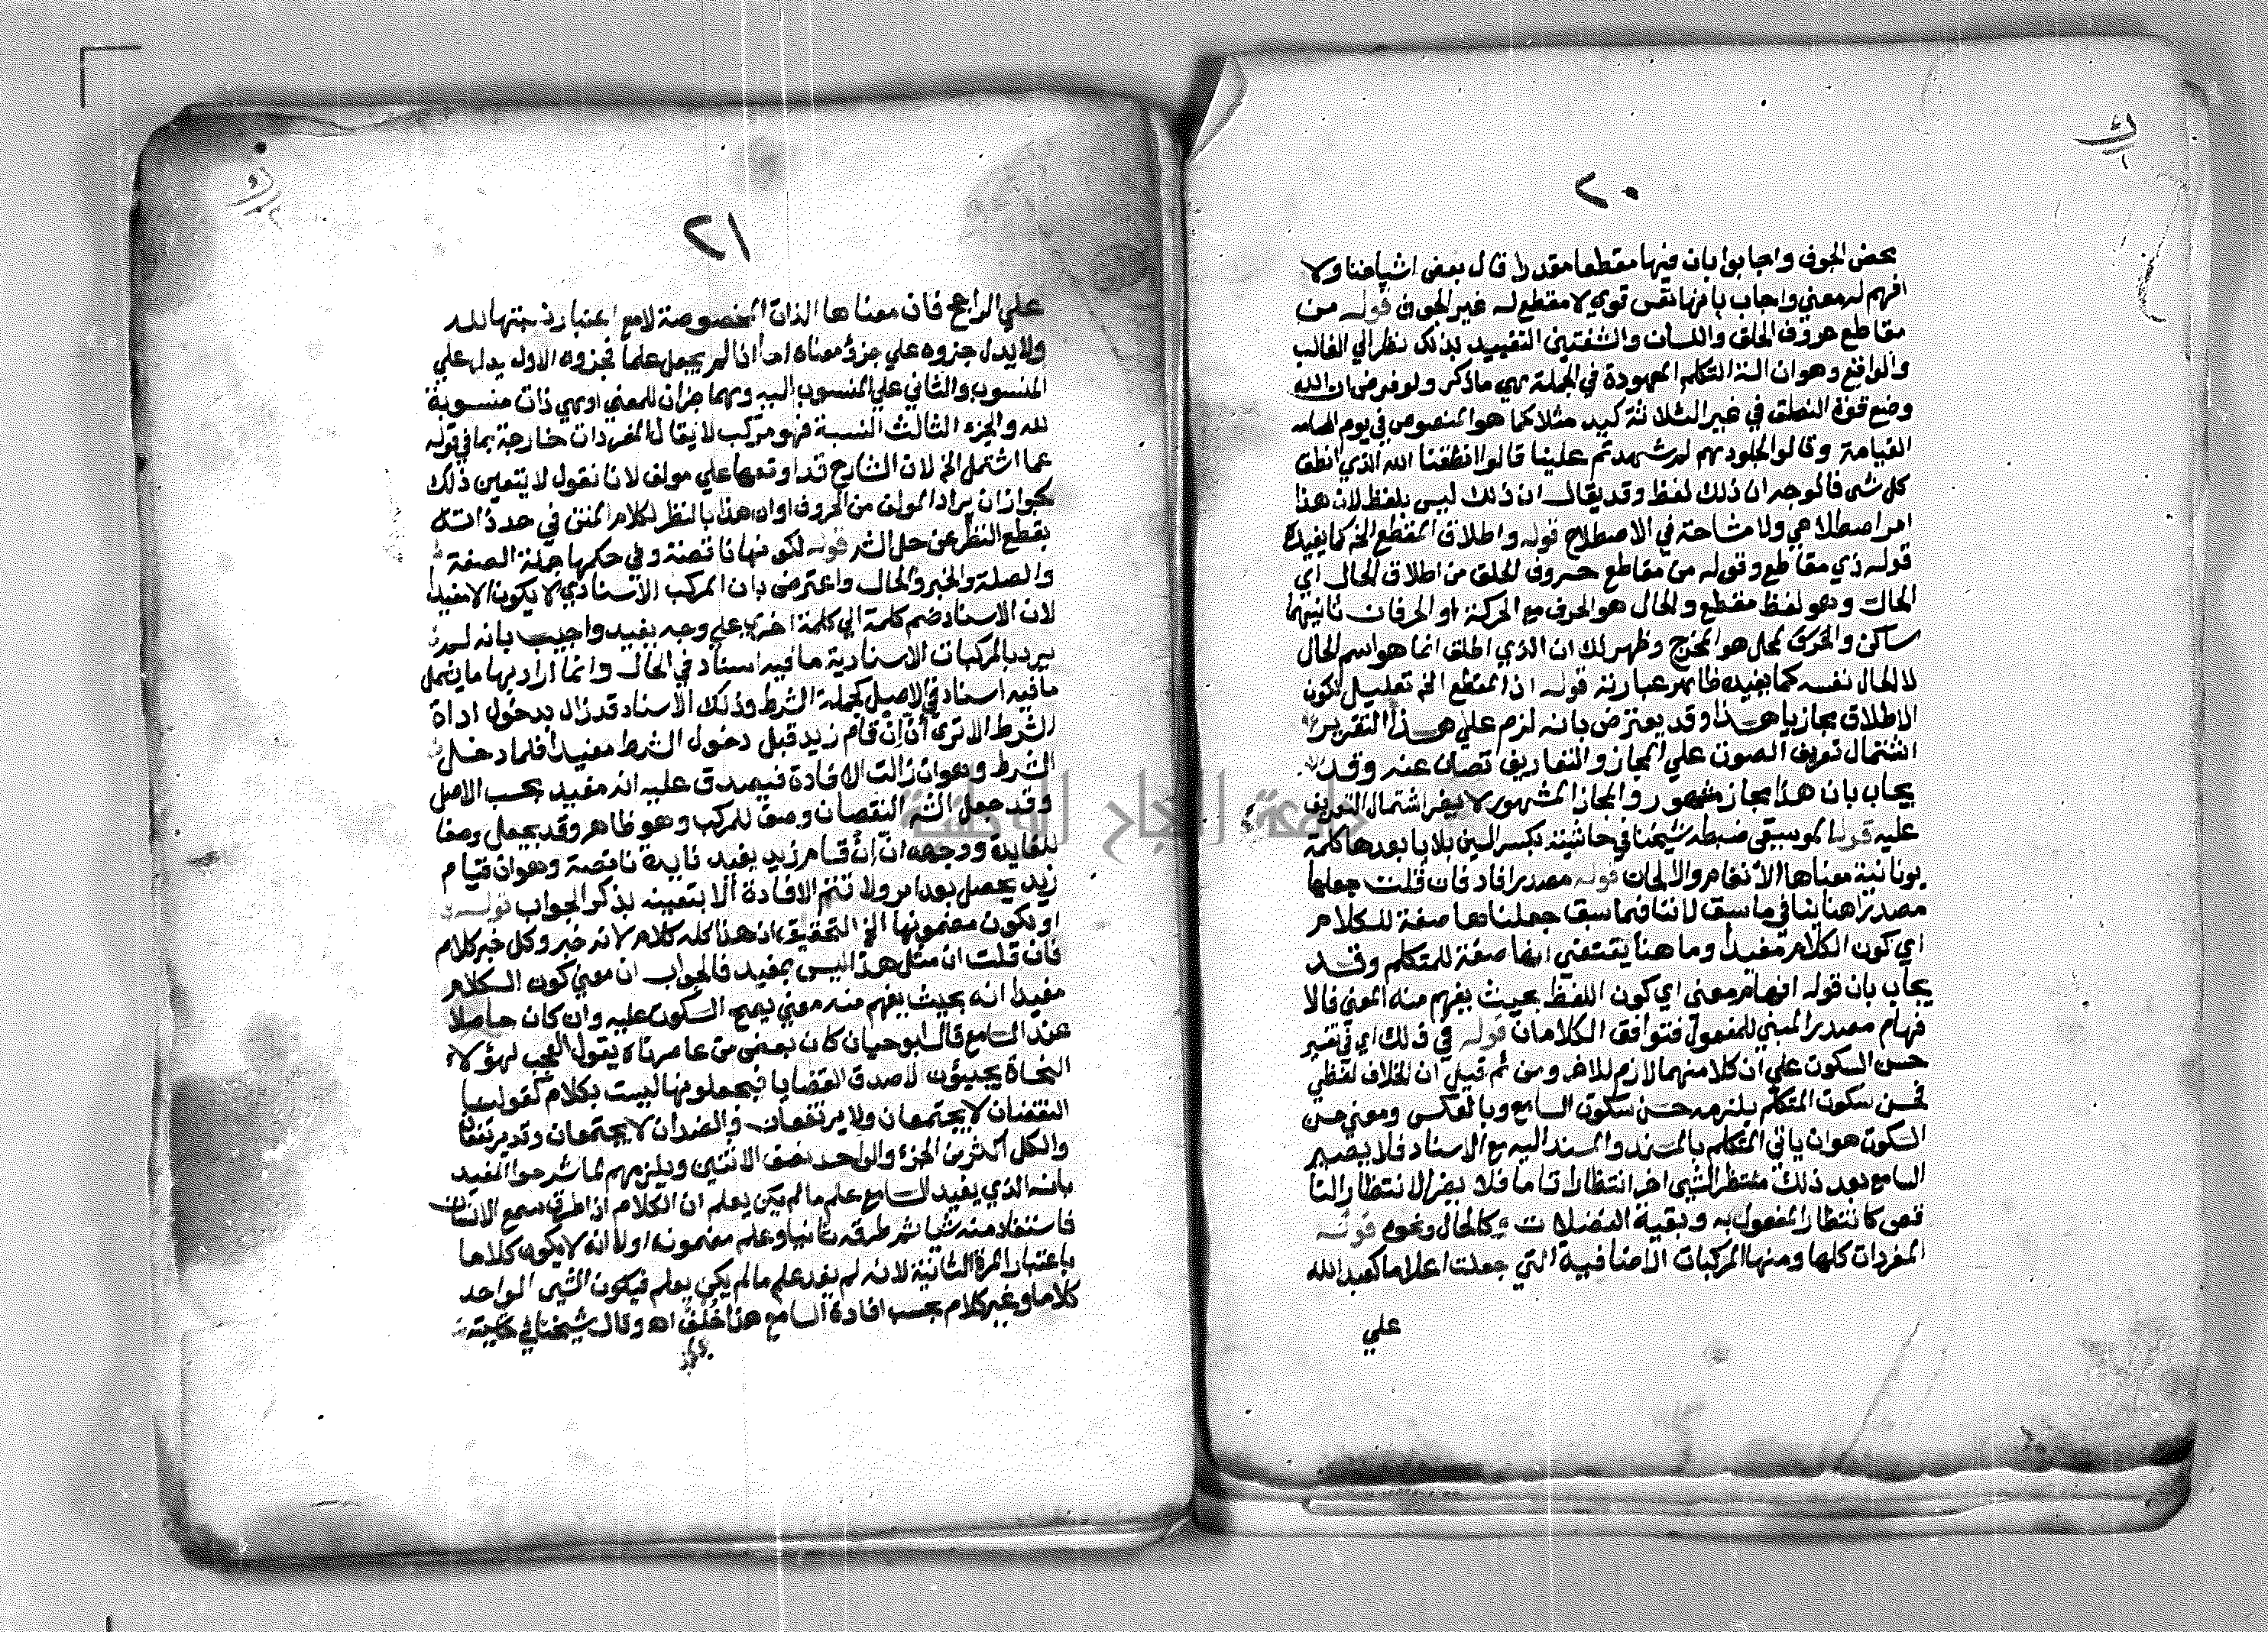 ٢٠
بحض الجوف واجابوا بان فيها مقطعا مقدرا قال بعض اشياخنا ولا
افهم له معني واجاب بانها نفس قوي لا مقطع له غير الجوف قوله من
مقاطع حروف الحلق واللسان والشفتين التقييد بذلك نظر الي الغالب
والواقع وهو ان الة التكلم المعهودة في الجملة هي ما ذكر ولو فرض ان الله
وضع قوة النطق في غير الثلاثة كيد مثلا كما هو المنصوص في يوم
القيامة وقالوا لجلودهم لم شهدتم علينا قالوا انطقنا الله الذي انطق
كل شي فالوجه ان ذلك لفظ وقد يقال ان ذلك ليس بلفظ لان هذا
امر اصطلاحي ولا مشاحة في الاصطلاح قوله واطلاق المقطع الخ كما يفيده
قوله ذي مقاطع وقوله من مقاطع حروف الحلق من اطلاق الحال اي
المحال وهو لفظ مقطع والحال هو الحرف مع الحركة او الحرفان ثانيهما
ساكن والمحل هو المخرج وظهر لك ان الذي اطلق انما هو اسم الحال
لا الحال نفسه كما يفيده ظاهر عبارته قوله اذ المقطع الخ تعليل لكون
الاطلاق مجازيا هذا وقد يعترض بانه لزم علي هذا التقرير
اشتمال تعريف الصوت علي المجاز والتعاريف تصان عنه وقد
يجاب بان هذا مجاز مشهور والمجاز المشهور لا يضر اشتمال التعريف
عليه قوله الموسيقي ضبطه شيخنا في حاشيته بكسر السين بلا يا بعدها كلمة
يونانية معناها الانغام والالحان قوله مصدر افاد فان قلت جعلها
مصدرا هنا ينافي ما سبق لاننا فيما سبق جعلناها صفة للكلام
اي كون الكلام مفيدا وما هنا يقتضي انها صفة للمتكلم وقد
يجاب بان قوله افهام معني اي كون اللفظ بحيث يفهم منه المعني فالا
فهام مصدر المبني للمفعول فتوافق الكلامان قوله في ذلك اي في تفسير
حسن السكوت علي ان كلا منهما لازم للاخر ومن ثم قيل ان الخلاف لفظي
فحسن سكوت المتكلم يلزمه حسن سكوت السامع وبالعكس ومعني حسن
السكوت هو ان ياتي المتكلم بالمسند والمسند اليه مع الاسناد فلا يصير
السامع بعد ذلك منتظرا لشي اخر انتظارا تاما فلا يضر الانتظار النا
قص كانتظار المفعول به وبقية الفضلات كالحال ونحوه قوله
المفردات كلها ومنها المركبات الاضافية التي جعلت اعلاما كعبد الله
علي
٢١
علي الراجح فان معناها الذات المخصوصة لا مع اعتبار نسبتها لله
ولا يدل جزوه علي جزؤ معناه اما اذا لم يجعل علما فجزوه الاول يدل علي
المنسوب والثاني علي المنسوب اليه وهما جزان للمعني اوهي ذات منسوبة
لله والجزء الثالث النسبة فهو مركب لا يقال المفردات خارجة بما في قوله
عما اشتمل الخ لان الشارح قد اوقعها علي مولف لانا نقول لا يتعين ذلك
لجواز ان يراد المولف من الحروف اوان هذا بالنظر لكلام المتن في حد ذاته
بقطع النظر عن حل الشر قوله لكونها ناقصة وفي حكمها جملة الصفة
والصلة والخبر والحال واعترض بان المركب الاسنادي لا يكون الا مفيدا
لان الاسناد ضم كلمة الي كلمة اخري علي وجه يفيد واجيب بانه لم
يرد بالمركبات الاسنادية ما فيه اسناد في الحال وانما اراد بها ما يشمل
ما فيه اسناد في الاصل كجملة الشرط وذلك الاسناد قد زال بدخول اداة
الشرط الا تري أن إن قام زيد قبل دخول الشرط مفيدا فلما دخل
الشرط وهو ان زالت الافادة فيصدق عليه انه مفيد بحسب الاصل
وقد جعل الشر النقصان وصفا للمركب وهو ظاهر وقد يجعل وصفا
للفايدة ووجهه ان إن قام زيد يفيد فايدة ناقصة وهو ان قيام
زيد يحصل بعد امر ولا تتم الافادة الا بتعيينه بذكر الجواب قوله
او لكون مضمونها الخ التحقيق ان هذا كله كلام لانه خبر وكل خبر كلام
فان قلت ان مثل هذا ليس بمفيد فالجواب ان معني كون الكلام
مفيدا انه بحيث يفهم منه معني يصح السكوت عليه وان كان حاصلا
عند السامع قال ابو حيان كان بعض من عاصرناه يقول العجب لهؤلاء
النحاة يجيؤن لاصدق القضايا فيجعلونها ليست بكلام كقولنا
النقيضان لا يجتمعان ولا يرتفعان والضدان لا يجتمعان وقد يرتفعان
والكل اكثر من الجزء والواحد نصف الاثنين ويلزمهم لما شرحوا المفيد
بانه الذي يفيد السامع علم ما لم يكن يعلم ان الكلام اذا طرق سمع الانسان
فاستفاد منه شيا ثم طرقه ثانيا وعلم مضمونه اولا انه لا يكون كلاما
باعتبار المرة الثانية لانه لم يفد علم ما لم يكن يعلم فيكون الشي الواحد
كلاما وغير كلام بحسب افادة السامع هذا خُلْفُ اه وقال شيخنا في حاشيته
جامعة النجاح الوطنية